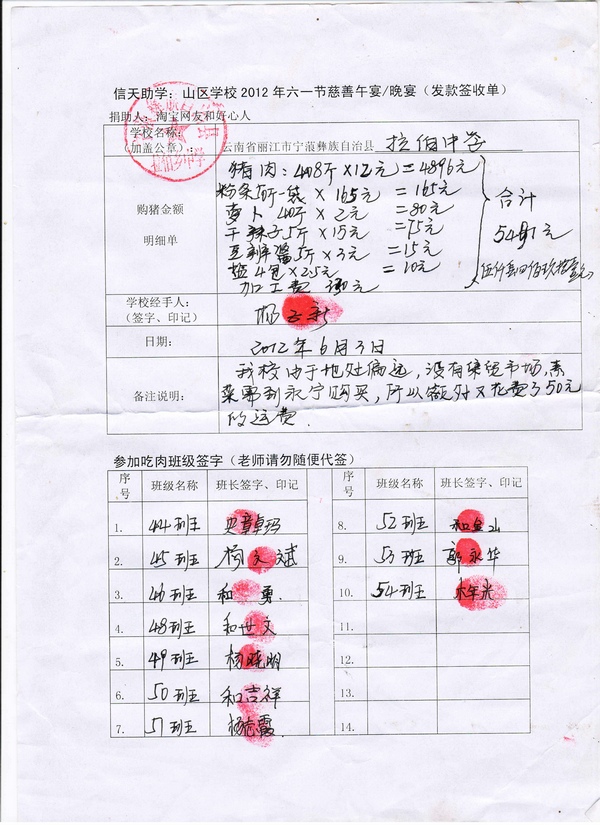 信天助学：山区学校2012年六一节慈善午宴/晚宴（发款签收单）
捐助人：淘宝网友和好心人
学校名称：
（加盖公章）：
云南省丽江市宁蒗彝族自治县 拉伯中学
拉伯乡中学
购猪金额
明细单
猪肉：408斤×12元=4896元
粉条5斤一袋×165元=165元
萝卜40斤×2元=80元
干辣子5斤×15元=75元
豆瓣酱5斤×3元=15元
盐4包×2.5元=10元
加工费
合计
学校经手人：
（签字、印记）
日期：
2012年6月3日
备注说明：
我校由于地处偏远，没有集貿市场，素
菜要到永宁购买，所以额外又花费了50元
的运费.
参加吃肉班级签字（老师请勿随便代签）
序号 班级名称 班长签字、印记 序号 班级名称 班长签字、印记
1. 44班 史章卓玛 8. 52班 和金山
2. 45班 杨文斌 9. 53班 郭永华
3. 46班 和勇. 10. 54班
4. 48班 和世文 11.
5. 49班 杨晓明 12.
6. 50班 和吉祥 13.
7. 51班 杨志霞. 14.